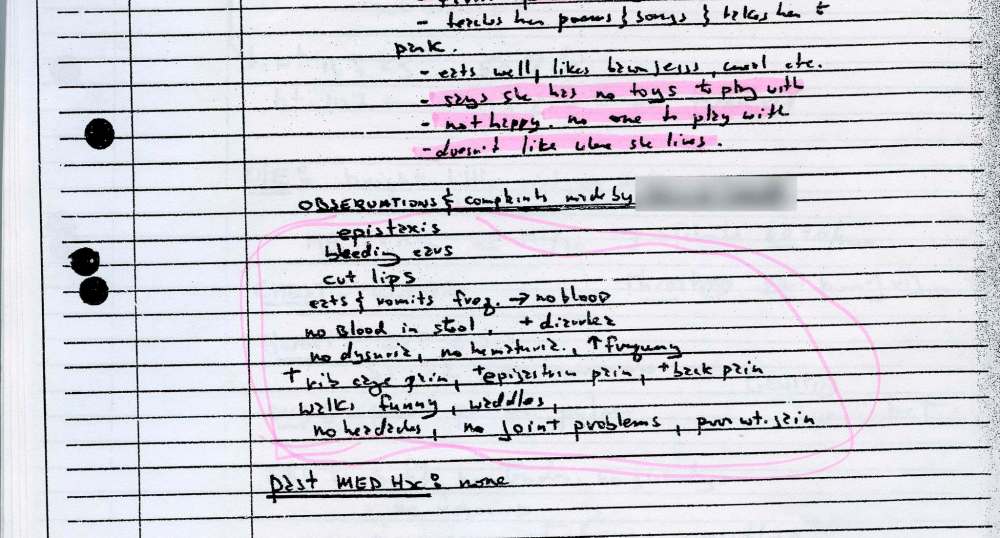 - teaches her poems & songs & takes her to
park.
- eats well, likes brown jesss, cereal etc.
- says she has no toys to play with
- not happy. no one to play with
- doesn't like where she lives.
OBSERVATIONS & complaints made by
epistaxis
bleeding ears
cut lips
eats & vomits freq. → no blood
no Blood in stool, + diarrhea
no dysuria, no hematuria, ↑ frequency
+ rib cage pain, + epigastrium pain, + back pain
walks funny, waddles,
no headaches, no joint problems, poor wt. gain
past MED Hx: none